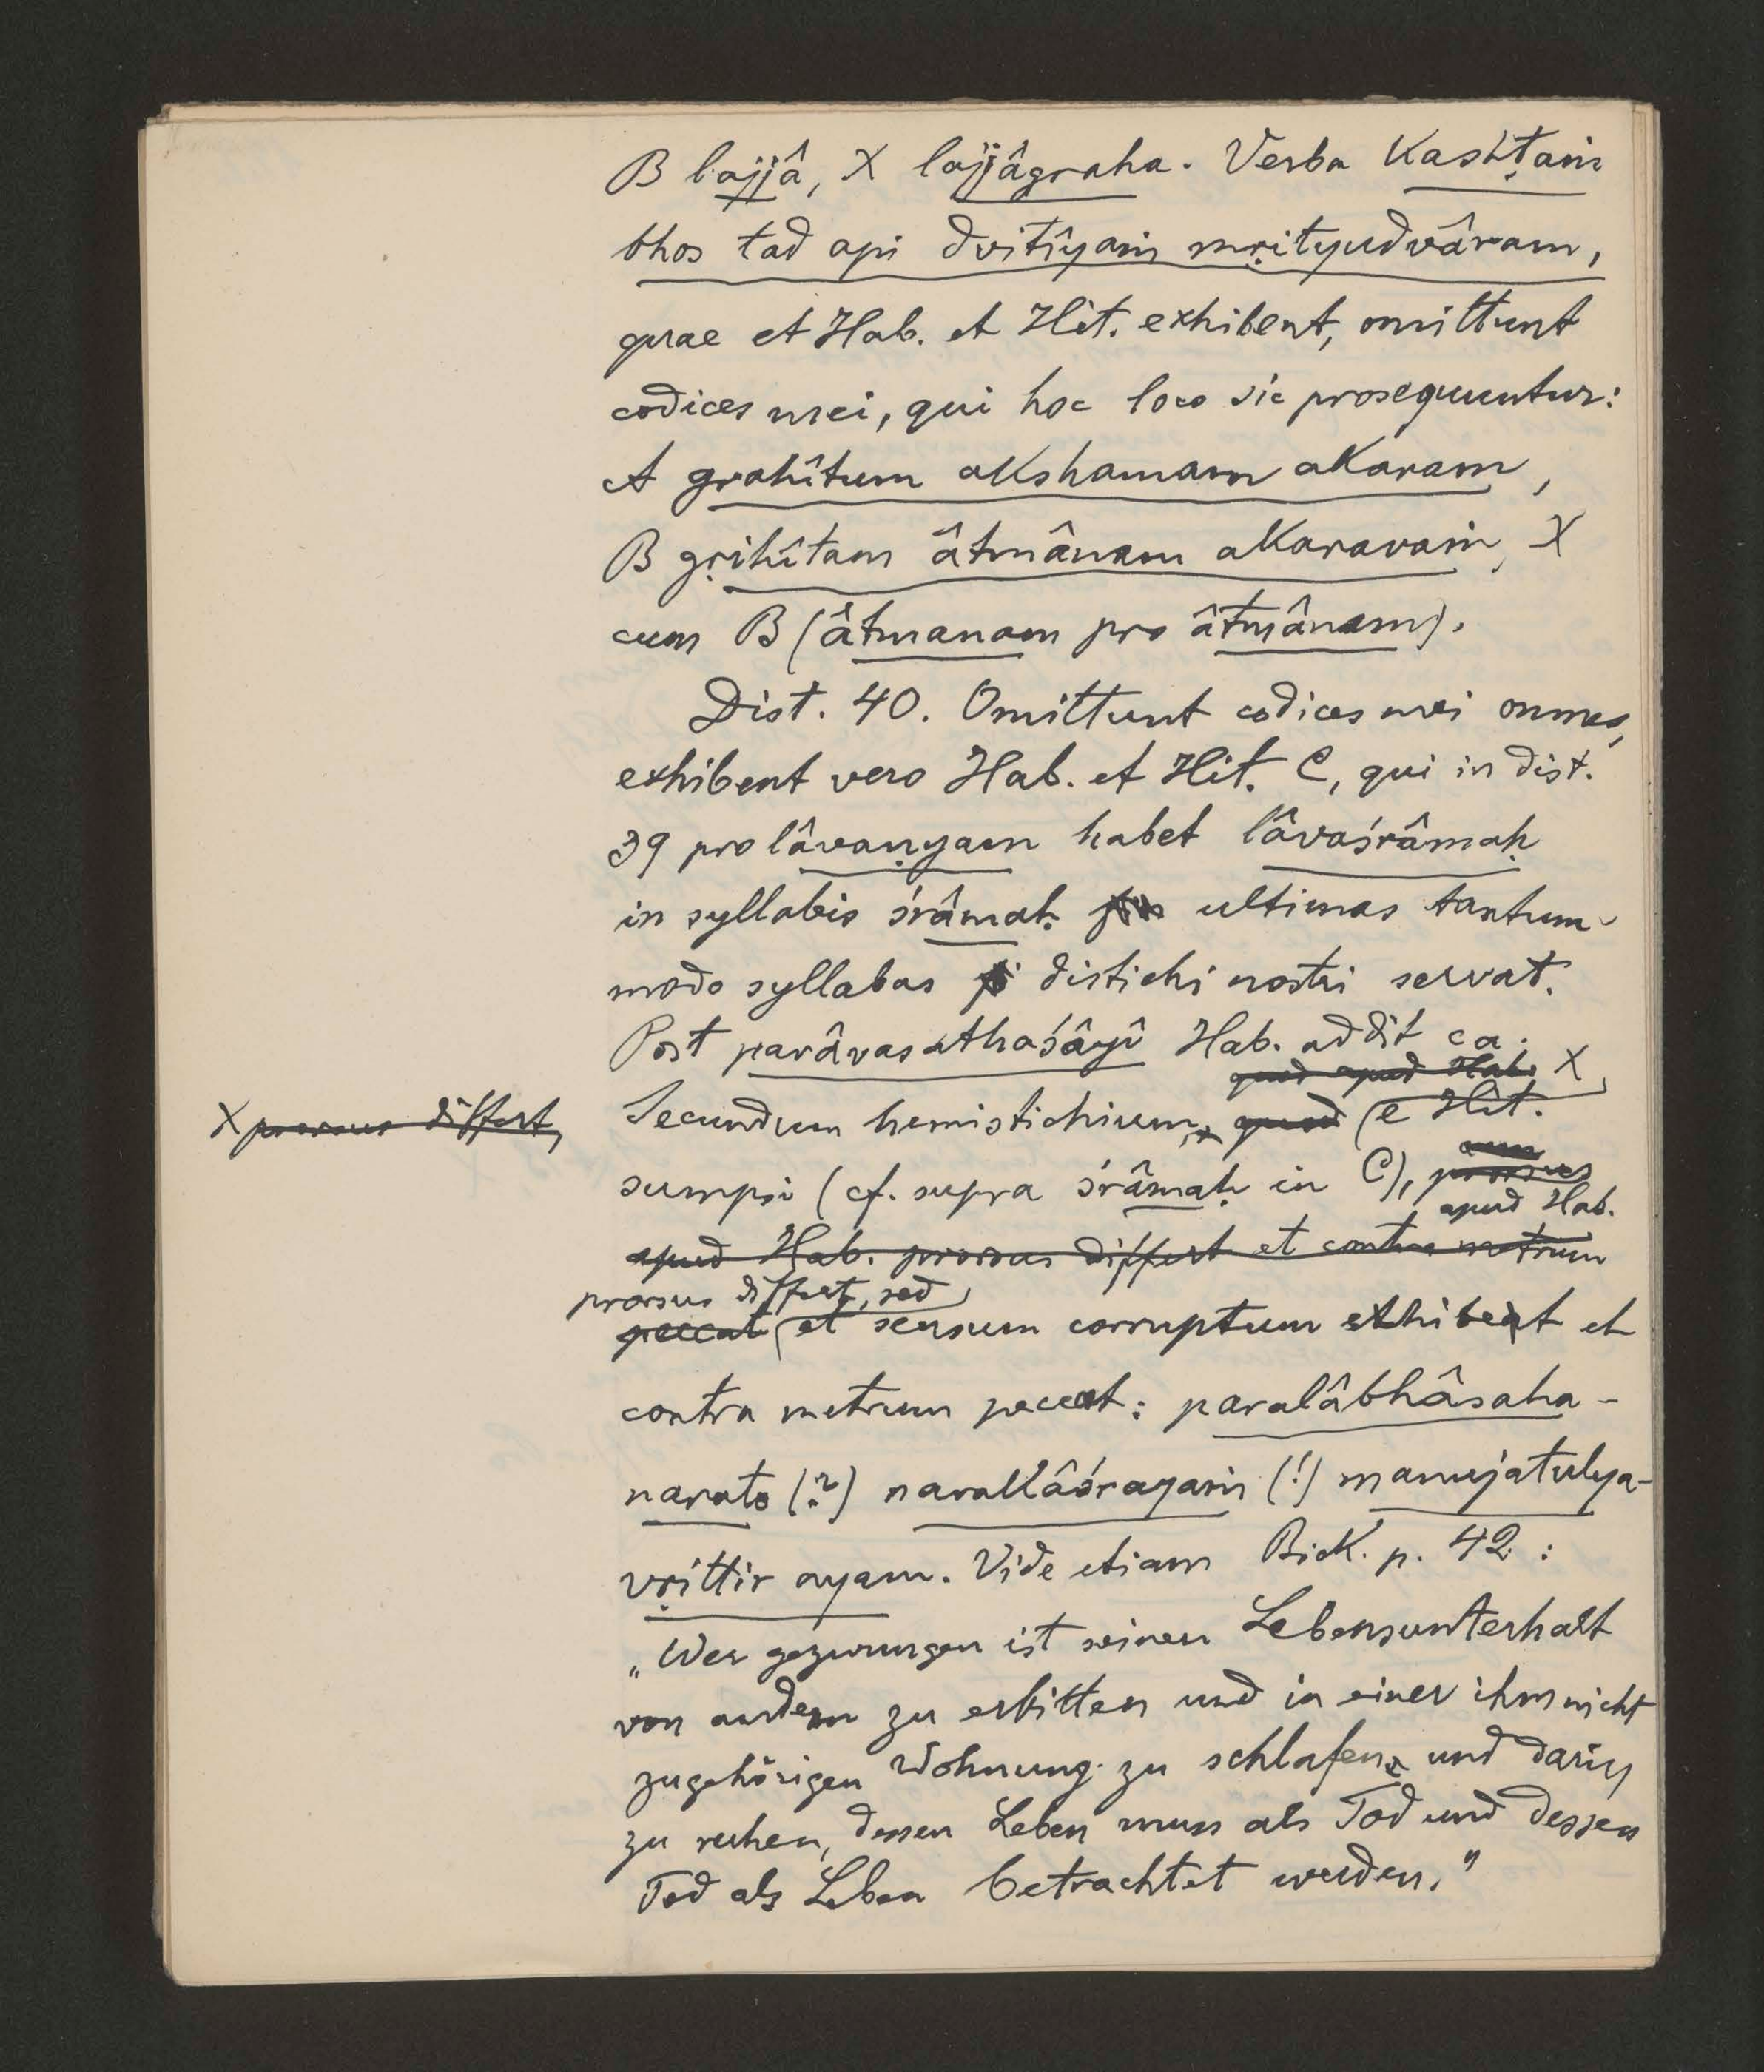 B lajjâ, X lajjâgraha. Verba Kashṭaṁ
bhos tad api dvitîyaṁ mṛityudvâram,
quae et Hab. et Hit. exhibent, omittunt
codices mei, qui hoc loco sic prosequuntur:
A grahîtum akshamam akaram,
B gṛihîtam âtmânam akaravaṁ, X
cum B (âtmanam pro âtmânam).
Dist. 40. Omittunt codices mei omnes,
exhibent vero Hab. et Hit. C, qui in dist.
39 pro lâvaṇyam habet lâvaśrâmaḥ
in syllabis śrâmaḥ ultimas tantum-
modo syllabas distichi nostri servat.
Post parâvasathaśâyî Hab. addit ca.
quod apud Hab. X
X prorsus differt,
Secundum hemistichium, quod e Hit.
sumpsi (cf. supra śrâmaḥ in C), prorsus
apud Hab.
apud Hab. prorsus differt et contra metrum
prorsus differt, sed
peccat et sensum corruptum exhibet et
contra metrum peccat: paralâbhâsaha-
narato (?) narakâśrayaṁ (!) manujatulya-
vṛittir ayam. Vide etiam Bick. p. 42:
„Wer gezwungen ist seinen Lebensunterhalt
von andern zu erbitten und in einer ihm nicht
zugehörigen Wohnung zu schlafen und darin
zu ruhen, dessen Leben muss als Tod und dessen
Tod als Leben betrachtet werden."